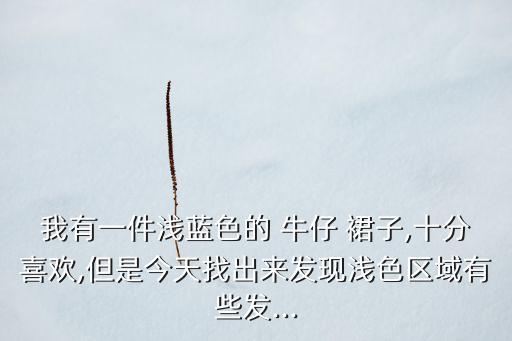 我有一件浅蓝色的 牛仔 裙子,十分
喜欢,但是今天找出来发现浅色区域有
些发...